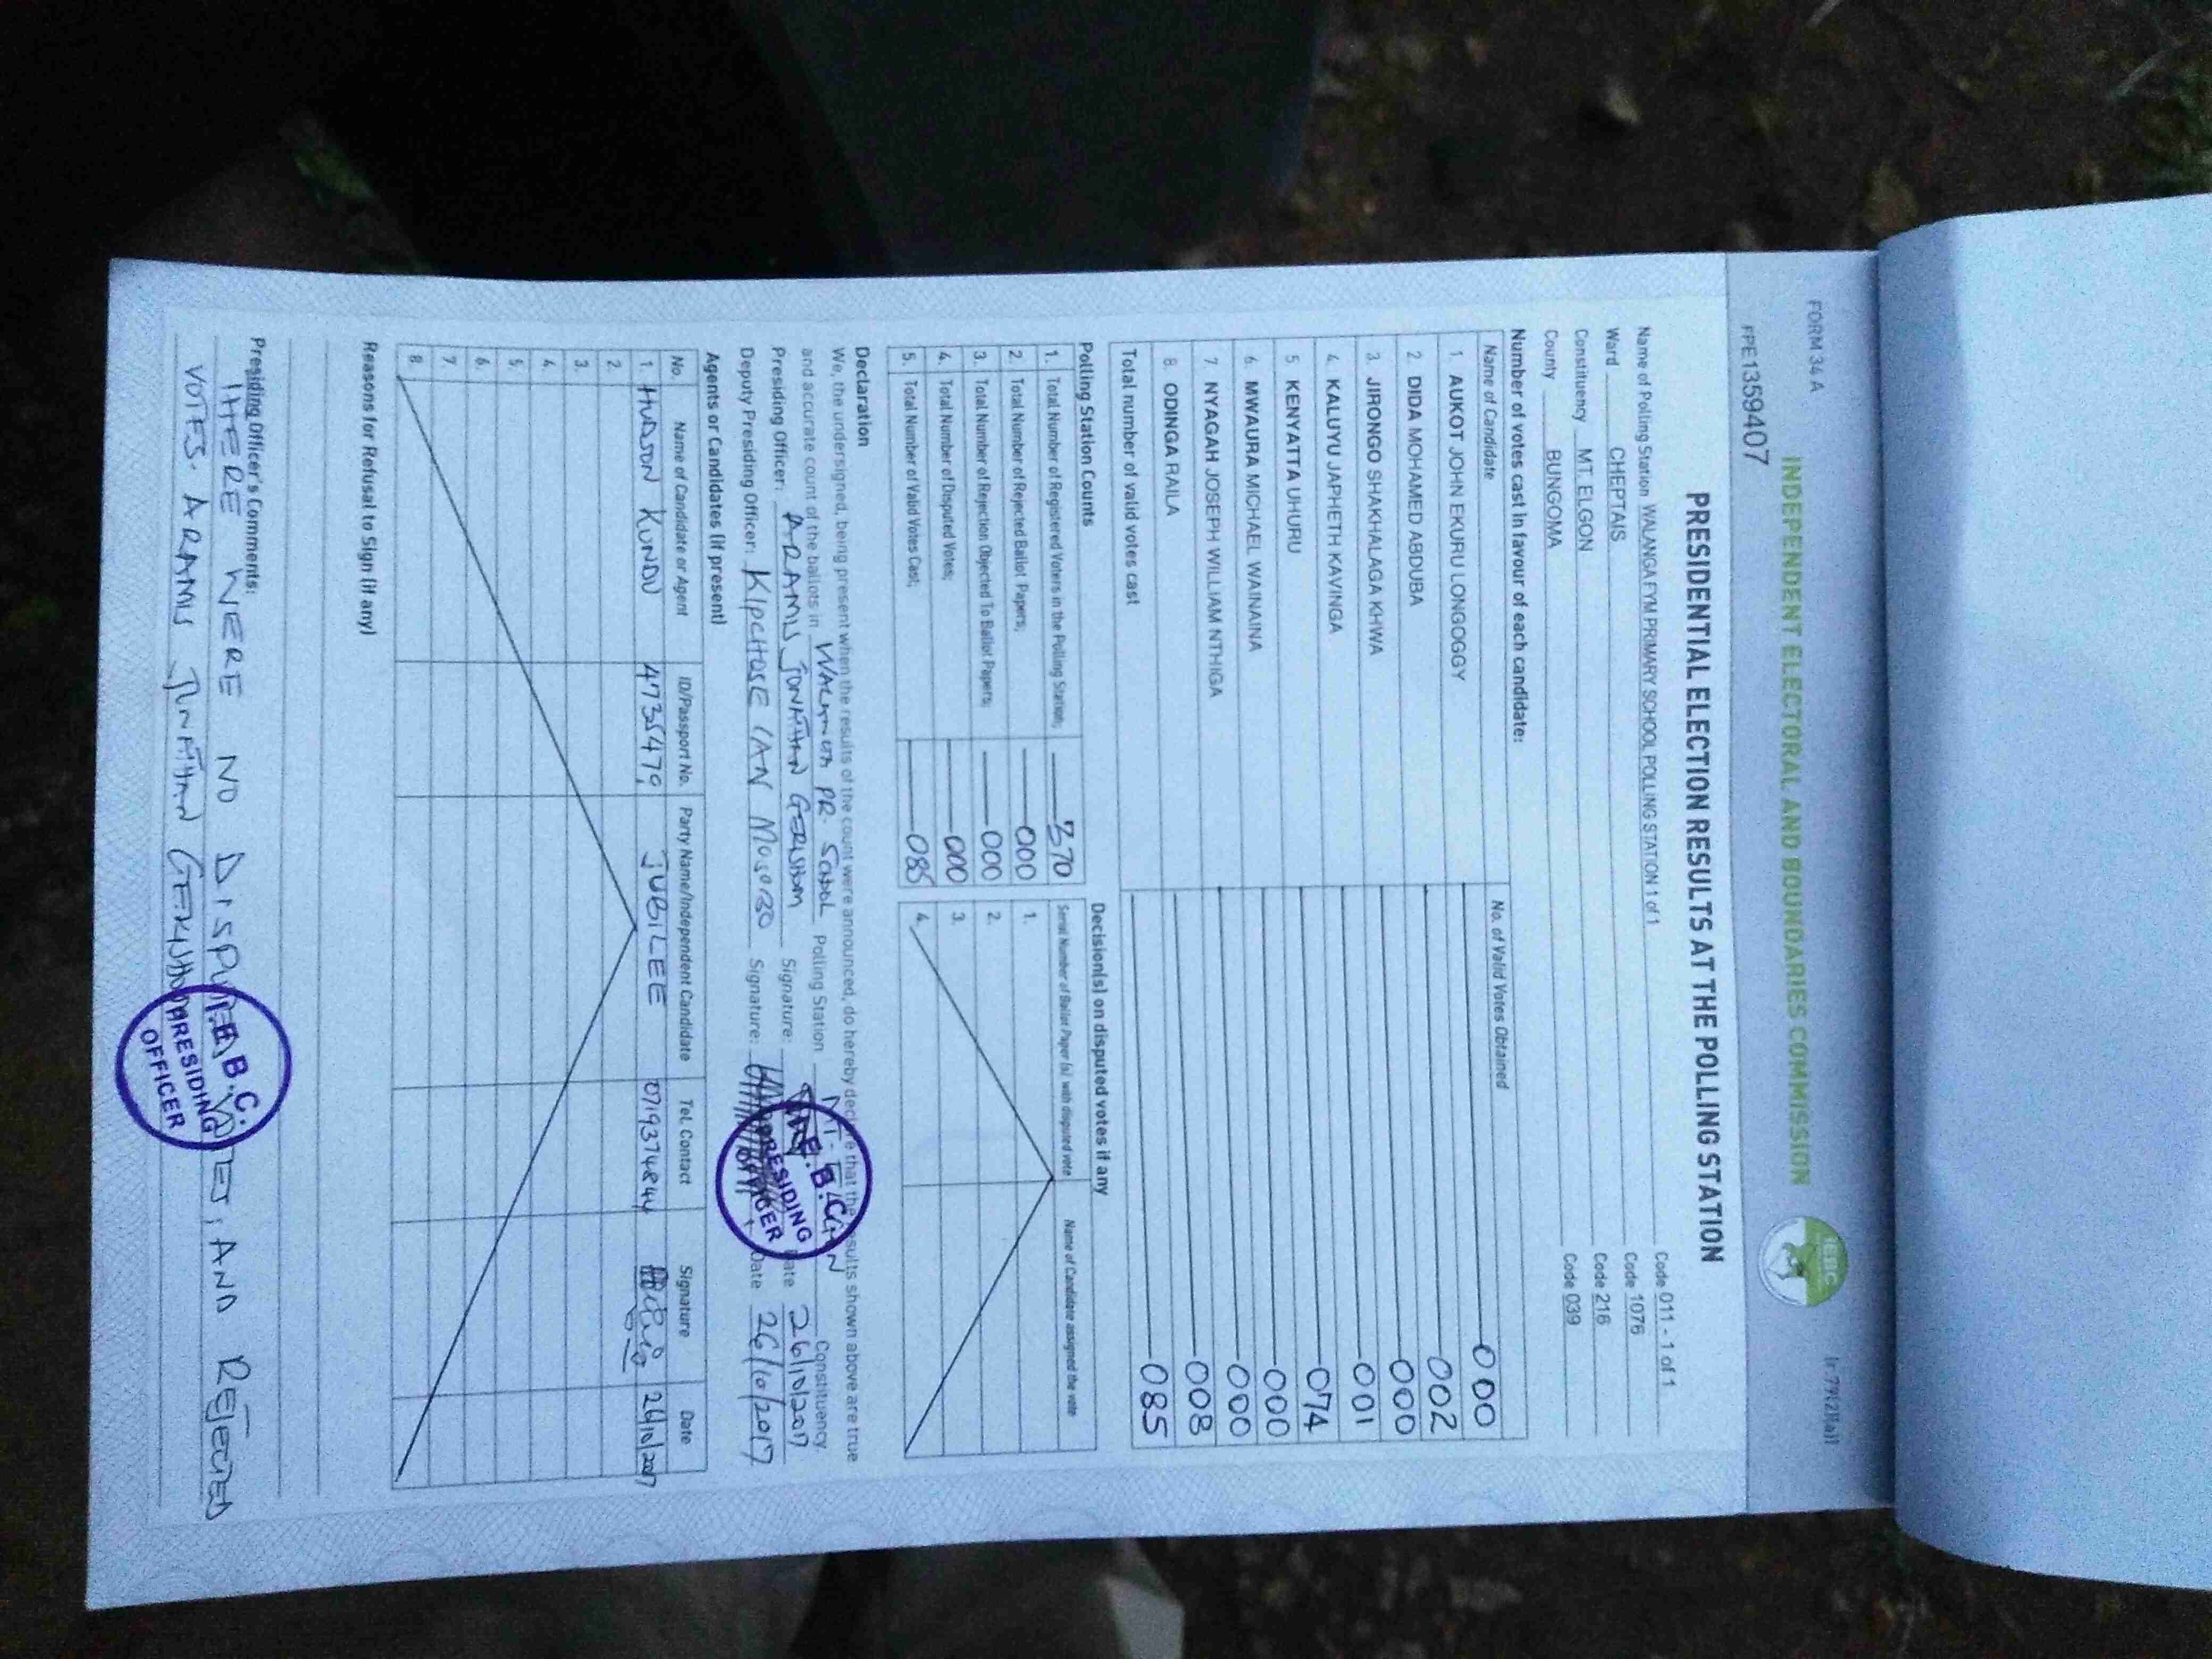 FORM 34 A
INDEPENDENT ELECTORAL AND BOUNDARIES COMMISSION
IEBC
FPE1359407
PRESIDENTIAL ELECTION RESULTS AT THE POLLING STATION
Name of Polling Station WALANGA FYM PRIMARY SCHOOL POLLING STATION 1 of 1 Code 011 - 1 of 1
Ward CHEPTAIS Code 1076
Constituency MT. ELGON Code 216
County BUNGOMA Code 039
Number of votes cast in favour of each candidate:
Name of Candidate No. of Valid Votes Obtained
1 AUKOT JOHN EKURU LONGOGGY 000
2 DIDA MOHAMED ABDUBA 002
3. JIRONGO SHAKHALAGA KHWA 000
4. KALUYU JAPHETH KAVINGA 001
5 KENYATTA UHURU 074
6 MWAURA MICHAEL WAINAINA 000
7 NYAGAH JOSEPH WILLIAM NTHIGA 000
8 ODINGA RAILA 008
Total number of valid votes cast 085
Polling Station Counts
1. Total Number of Registered Voters in the Polling Station; 370
2. Total Number of Rejected Ballot Papers; 000
3. Total Number of Rejection Objected To Ballot Papers; 000
4. Total Number of Disputed Votes; 000
5. Total Number of Valid Votes Cast; 085
Decision(s) on disputed votes if any
Serial Number of Ballot Paper (s) with disputed vote Name of Candidate assigned the vote
1.
2.
3.
4.
Declaration
We, the undersigned, being present when the results of the count were announced, do hereby declare that the results shown above are true
and accurate count of the ballots in PR. SCHOOL Polling Station Constituency
Presiding Officer: ARAMU JONATHAN GERISHOM Signature: Date 26/10/2017
Deputy Presiding Officer: KIPCHOSE IAN MOSOBO Signature: Date 26/10/2017
I.E.B.C.
PRESIDING
OFFICER
Agents or Candidates (if present)
No. Name of Candidate or Agent ID/Passport No. Party Name/Independent Candidate Tel. Contact Signature Date
1. HUDSON KUNDU 4735479 JUBILEE 0719374844 26/10/2017
2.
3.
4.
5.
6.
7
8.
Reasons for Refusal to Sign (if any)
Presiding Officer's Comments:
THERE WERE NO DISPUTED VOTES, AND REJECTED
VOTES. ARAMU JONATHAN GERISHOM
I.E.B.C.
PRESIDING
OFFICER